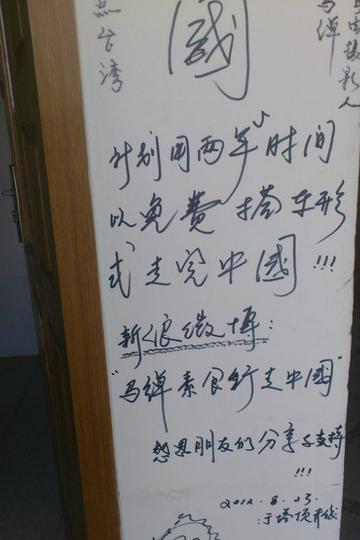 台湾
國
摄影人
马绰
计划用两年时间
以免费搭车形
式走完中國!!!
新浪微博:
"马绰素食行走中國"
感恩朋友们分享与支持
!!!
2012.8.23.
于塔顶